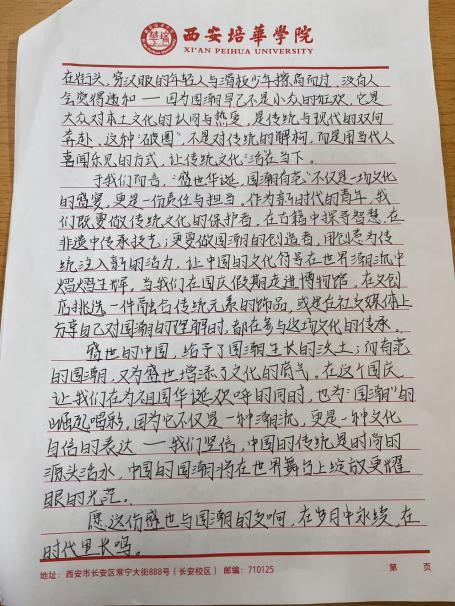 西安培華學院
XI'AN PEIHUA UNIVERSITY
在街头，穿汉服的年轻人与滑板少年擦肩而过，没有人
会觉得违和——因为国潮早已不是小众的狂欢，它是
大众对本土文化的认同与热爱，是传统与现代的双向
奔赴，这种“破圈”不是对传统的解构，而是用当代人
喜闻乐见的方式，让传统文化“活”在当下。
于我们而言，“盛世华诞，国潮有范”不仅是一场文化
的盛宴，更是一份责任与担当。作为新时代的青年，我
们既要做传统文化的保护者，在古籍中探寻智慧，在
非遗中传承技艺；更要做国潮的创造者，用创意为传
统注入新的活力，让中国的文化符号在世界潮流中
熠熠生辉。当我们在国庆假期走进博物馆，在文创
店挑选一件融合传统元素的饰品，或是在社交媒体上
分享自己对国潮的理解时，都在参与这场文化的传承。
盛世的中国，给予了国潮生长的沃土；而有范
的国潮，又为盛世增添了文化的底气。在这个国庆，
让我们在为祖国华诞欢呼的同时，也为“国潮”的
崛起喝彩，因为它不仅是一种潮流，更是一种文化
自信的表达——我们坚信，中国的传统是时尚的
源头活水，中国的国潮将在世界舞台上绽放更耀
眼的光芒。
愿这份盛世与国潮的交响，在岁月中永续，在
时代里长鸣。
地址：西安市长安区常宁大街888号（长安校区） 邮编：710125 第 页